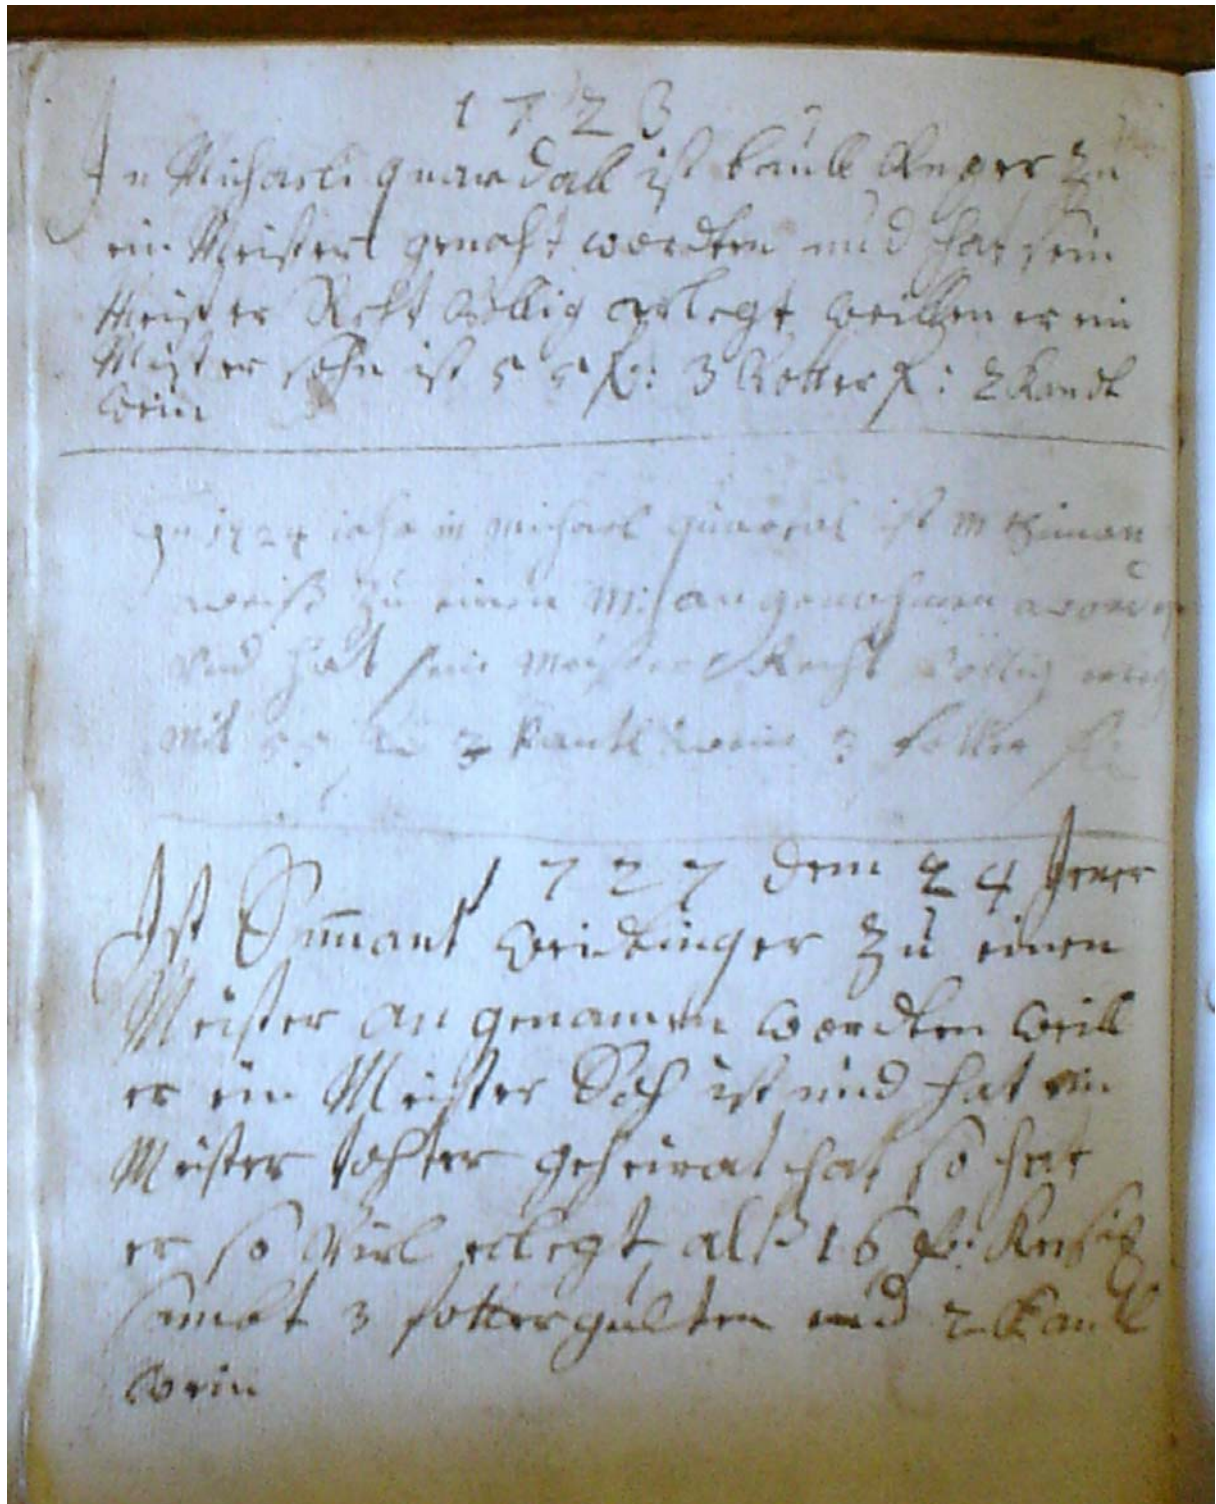 1723
In Michaeli quardall ist Paull zu
ein Meister gemacht wordten und hat sein
Meister Recht völlig erlegt weillen er ein
Meister sohn ist 5 5 fl: 3 Rotter fl: 2 Kandl
wein
in 1724 iahr in Michael quartal ist M
weiß zu einen M: angenohmen
und hat sein Meister Recht völlig
mit 2 kantl wein 3 rotter fl
1727 dem 24 Jener
Ist weidinger zu einen
Meister an genamen wordten weill
er ein Meister Soh ist und hat ein
Meister tohter geheirat hat so hat
er so viel erlegt alß 16 fl:
sambt 3 rotter gulten und 2 Kantl
wein